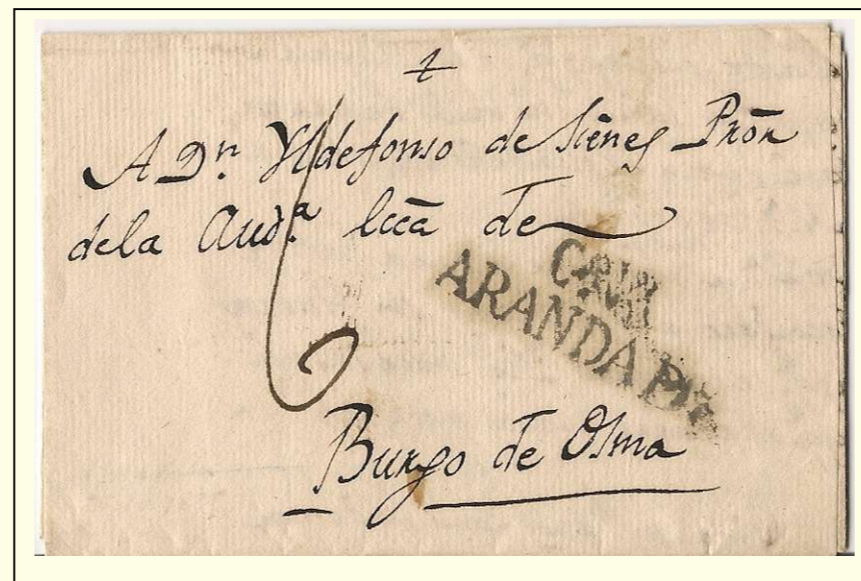 A Dn. Yldefonso de Sienes Pron
dela Auda. lcca de
ARANDA D
Burgo de Osma